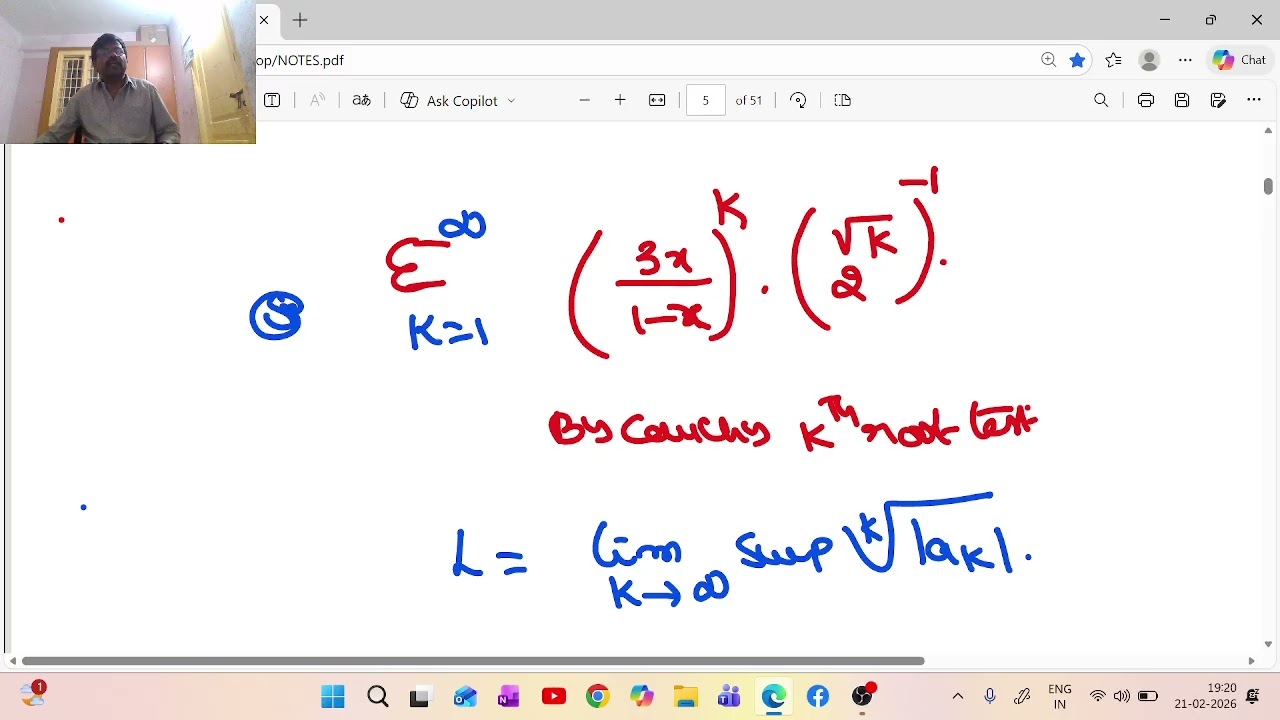 op/NOTES.pdf
Chat
aあ Ask Copilot
5 of 51
Σ^∞_{K=1} (3x/(1-x))^K · (√K 2)^{-1}.
By Cauchy K^Th root test
L = lim_{K→∞} Sup ^k√|a_K|.
1
ENG
IN
19:20
21-02-2026